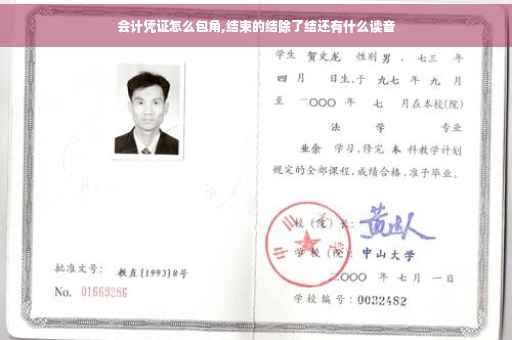 会计凭证怎么包角,结束的结除了结还有什么读音
学生 贺文龙 性别 男 . 七三 年
四 月 日生,于 九七 年 九 月
至 二〇〇〇 年 七 月在本校(院)
法 学 专业
业余 学习,修完 本 科教学计划
规定的全部课程,成绩合格,准予毕业。
校 (院) 长:
学 校 (院): 中山大学
二〇〇〇 年 七 月 一 日
批准文号: 教直(1993)8号
No. 01669286
学校编号: 0032482